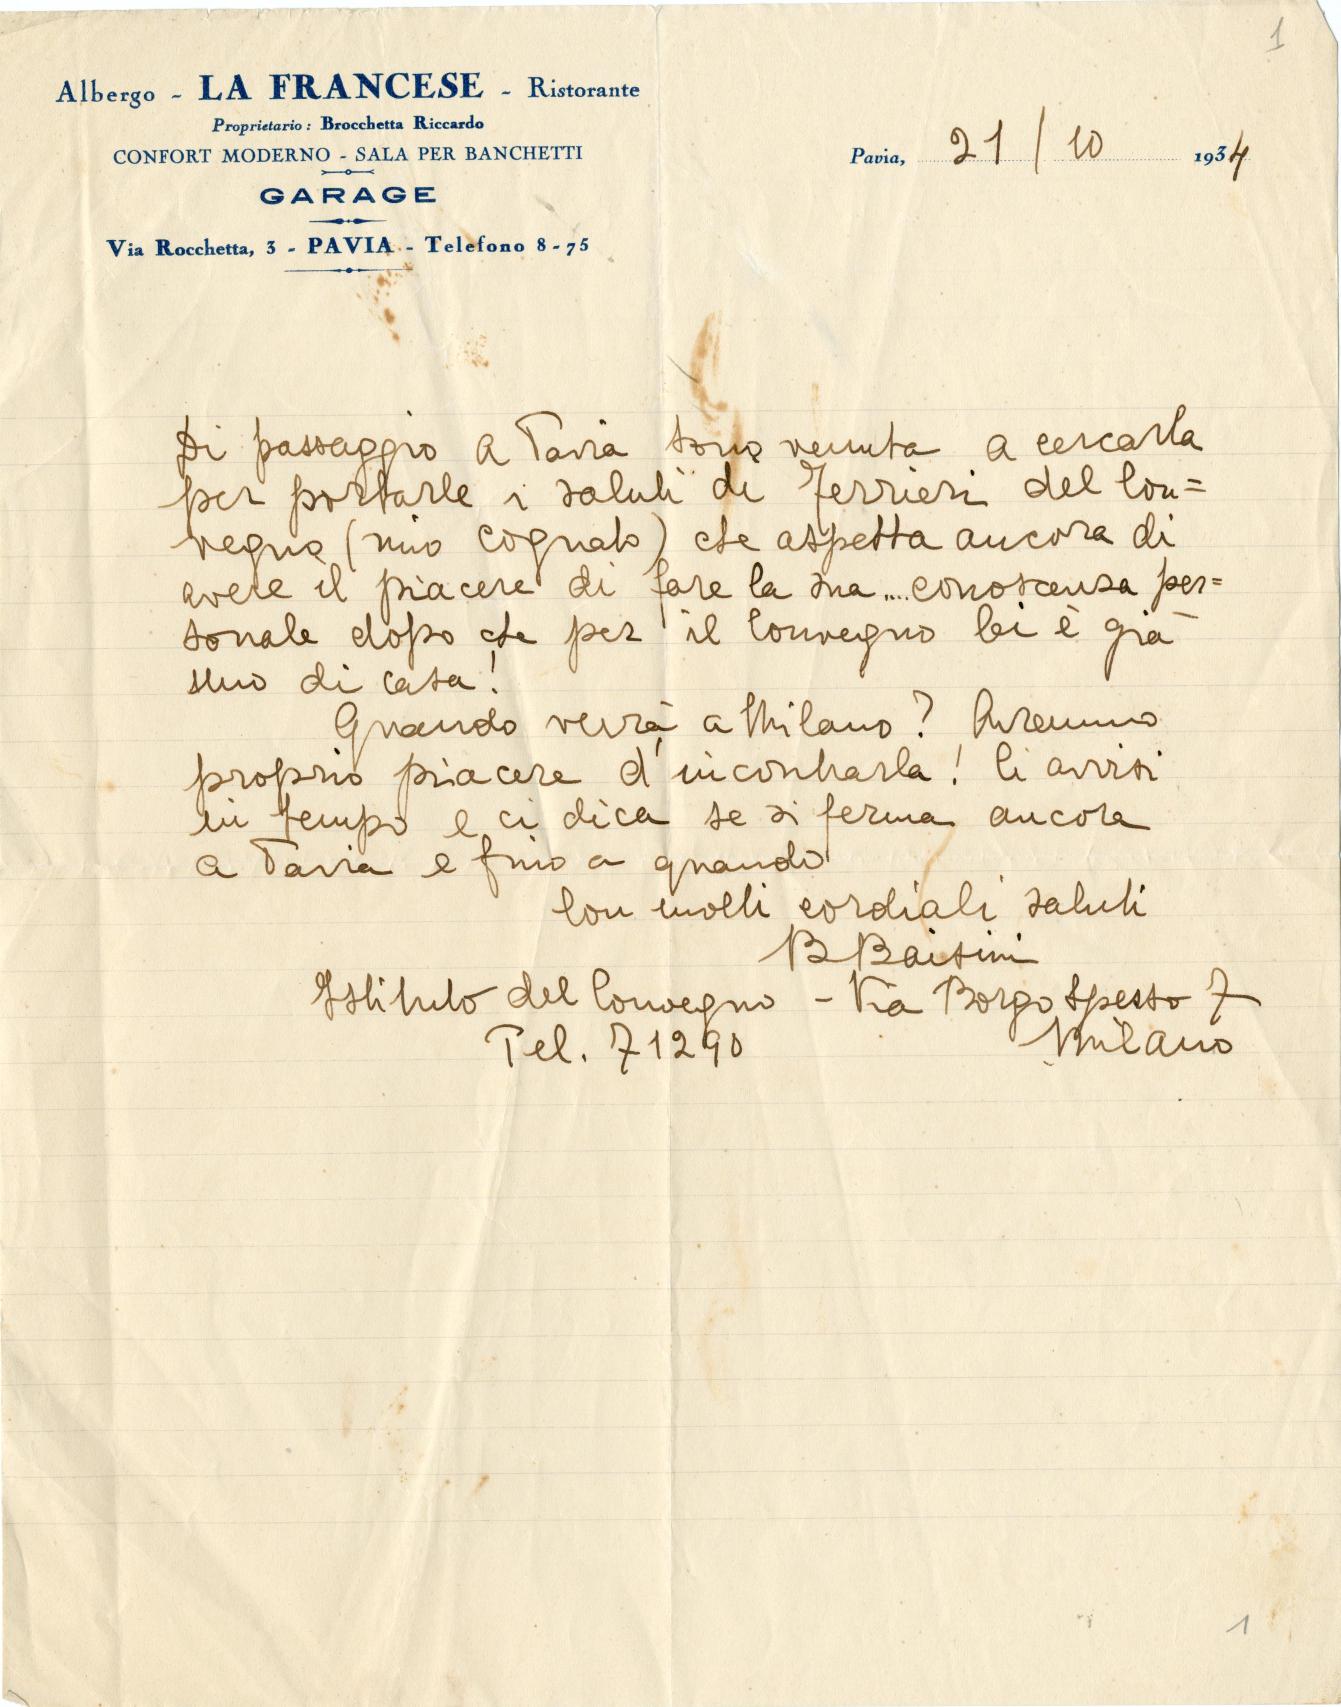 1
Albergo - LA FRANCESE - Ristorante
Proprietario: Brocchetta Riccardo
CONFORT MODERNO - SALA PER BANCHETTI
GARAGE
Via Rocchetta, 3 - PAVIA - Telefono 8-75
Pavia, 21/10 1934
Di passaggio a Pavia sono venuta a cercarla
per portarle i saluti di Ferrieri del Con=
vegno (mio cognato) che aspetta ancora di
avere il piacere di fare la sua .... conoscenza per=
sonale dopo che per il Convegno lei è già
uno di casa!
Quando verrà a Milano? Avremmo
proprio piacere d'incontrarla! Ci avvisi
in tempo e ci dica se si ferma ancora
a Pavia e fino a quando
Con molti cordiali saluti
B Baisini
Istituto del Convegno - Via Borgo Spesso 7
Tel. 71290 Milano
1